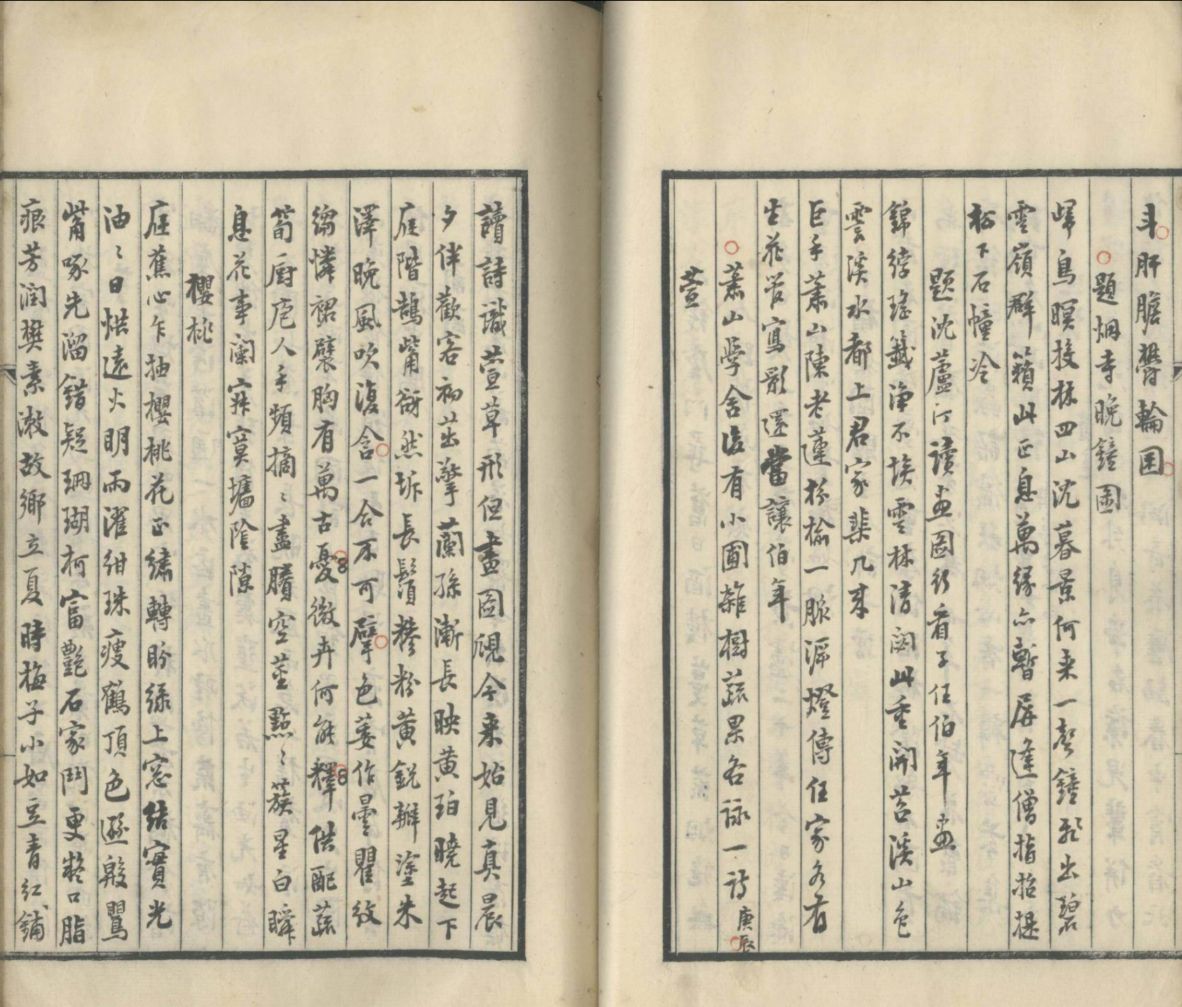 斗肝膽鬱輪囷
題烟寺晚鐘圖
歸鳥暝投林四山沈暮景何來一聲鐘飛出碧
雲嶺群籟此正息萬緣亦暫屏逢僧指招提
松下石幢冷
題沈蘆汀讀畫圖行看子任伯年畫
錦綍瑤籤淨不埃雲林清閟此重開苕溪山色
雲溪水都上君家棐几來
巨手蕭山陳老蓮枌榆一脈泝燈傳任家各有
生花管寫影還當讓伯年
蕭山學舍後有小圃雜樹蔬果各詠一詩庚辰
萱
讀詩識萱草形但畫圖覗今來始見真晨
夕伴歡客初茁擎蘭孫漸長映黃珀曉起下
庭階鵠觜谺然坼長鬚糝粉黃銳瓣塗朱
澤晚風吹復含一合不可擘色萎作曇瞿紋
縐憐裙襞胸有萬古憂微卉何能釋供配蔬
筍廚庖人手頻摘摘盡賸空莖點點簇星白瞬
息花事闌寂寞墻陰隙
櫻桃
庭蕉心乍抽櫻桃花正繡轉盼綠上窓結實光
油油日烘遠火明雨濯紺珠瘦鶴頂色遜殷鸎
觜啄先溜錯疑珊瑚柯富艷石家鬥更擬口脂
痕芳潤樊素漱故鄉立夏時梅子小如豆青紅鋪